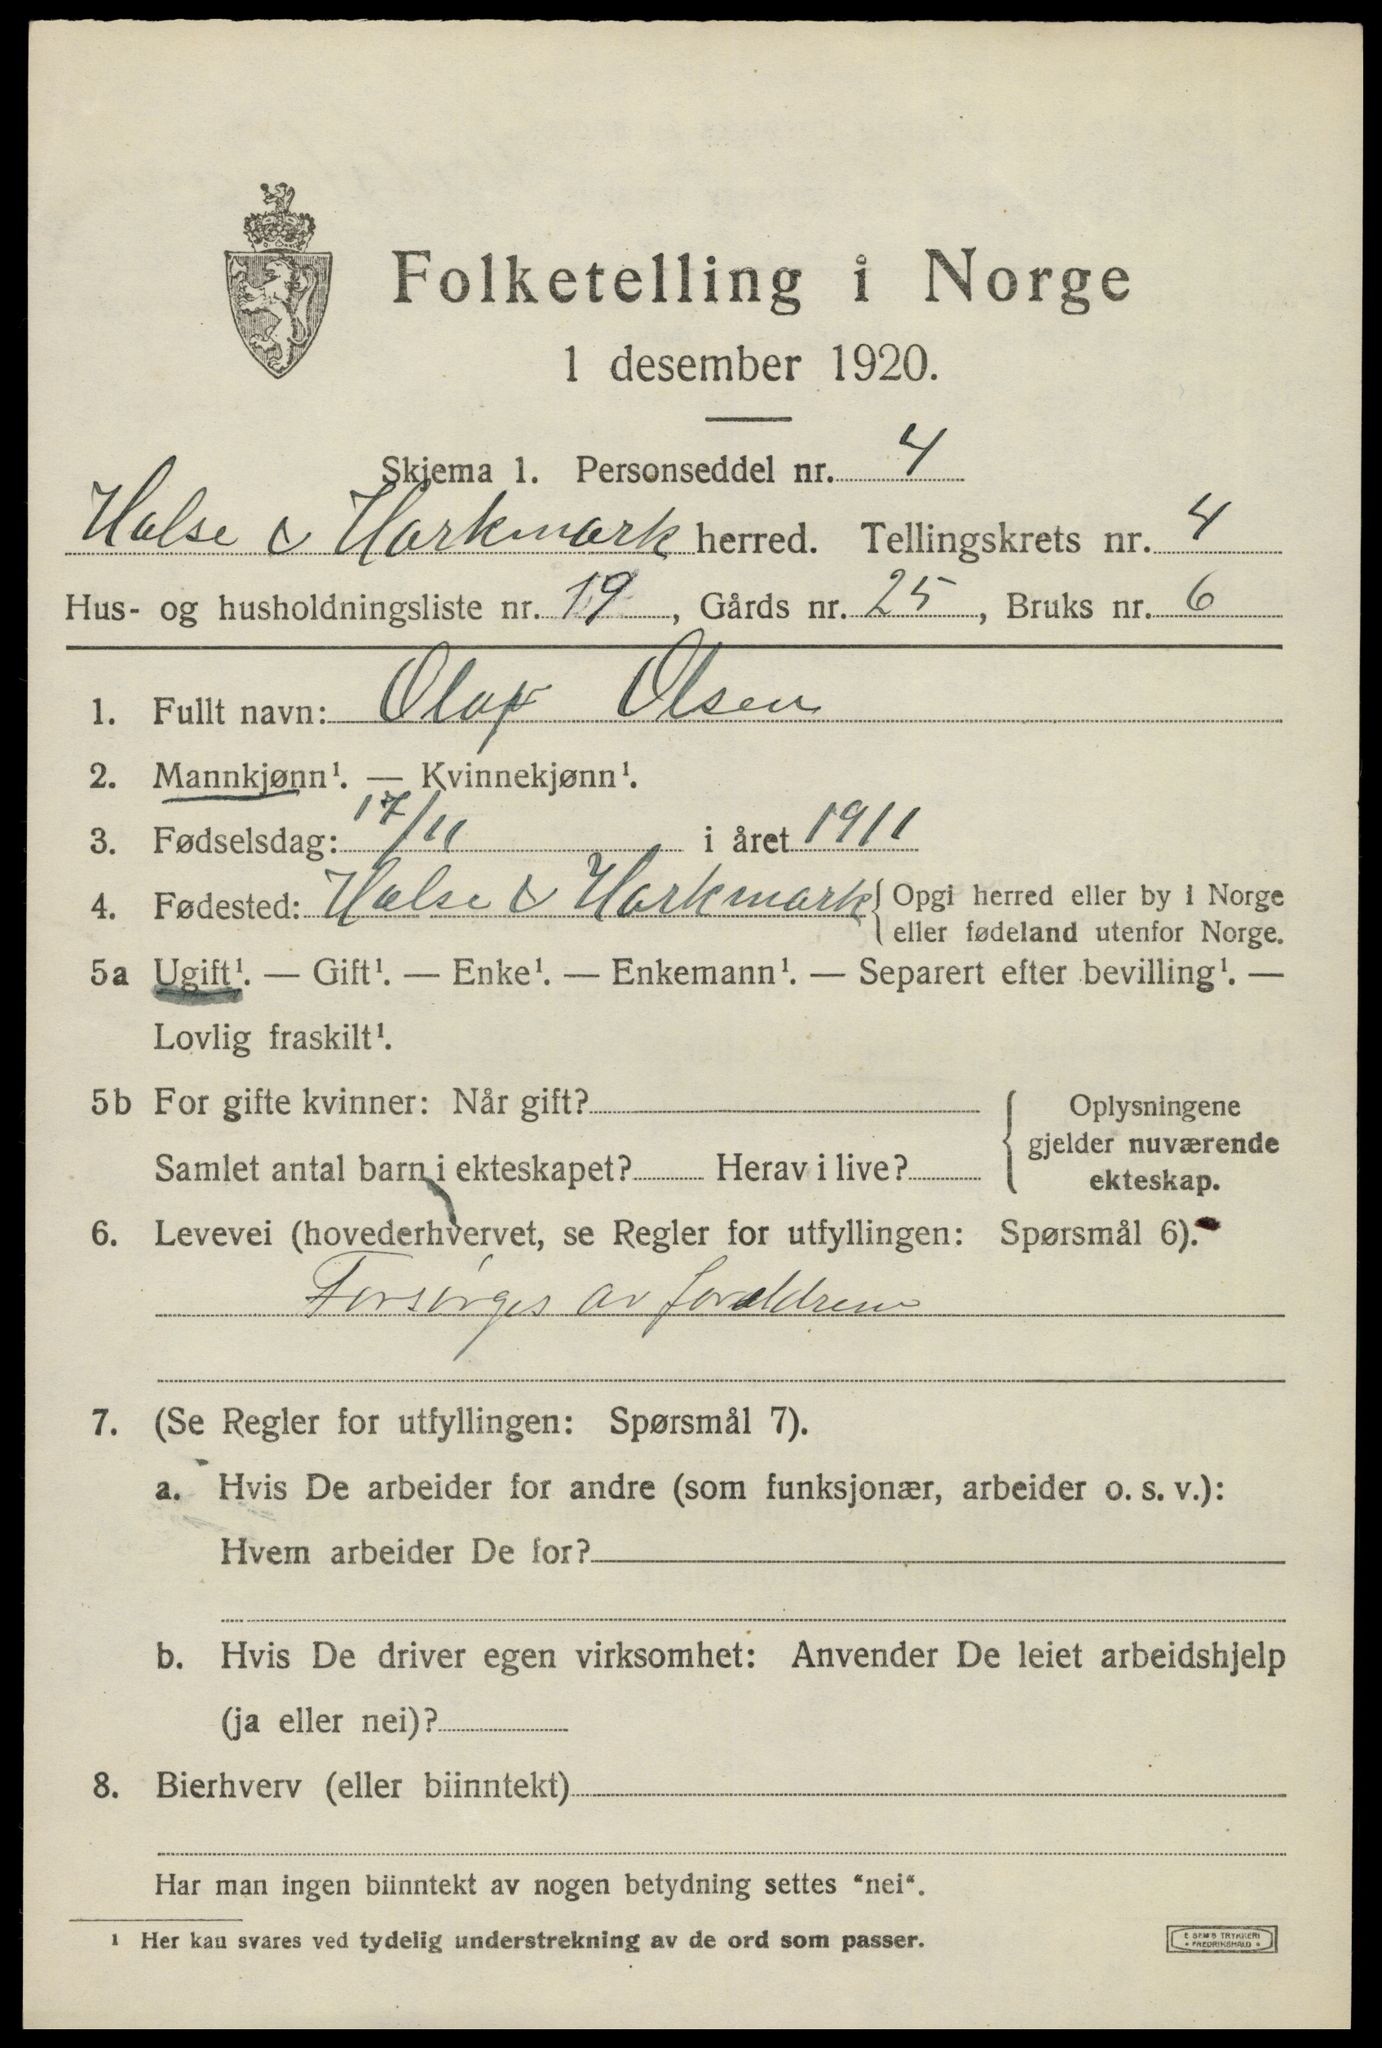 Folketelling i Norge
1 desember 1920.
Skjema 1. Personseddel nr. 4
Halse & Harkmark herred. Tellingskrets nr. 4
Hus- og husholdningsliste nr. 19, Gårds nr. 25, Bruks nr. 6
1. Fullt navn: Olaf Olsen
2. Mannkjønn¹. — Kvinnekjønn¹.
3. Fødselsdag: 17/11 i året 1911
4. Fødested: Halse & Harkmark { Opgi herred eller by i Norge
eller fødeland utenfor Norge.
5a Ugift¹. — Gift¹. — Enke¹. — Enkemann¹. — Separert efter bevilling¹. —
Lovlig fraskilt¹.
5b For gifte kvinner: Når gift? { Oplysningene
gjelder nuværende
Samlet antal barn i ekteskapet? Herav i live?
ekteskap.
6. Levevei (hovederhvervet, se Regler for utfyllingen: Spørsmål 6).
Forsørges av foreldrene
7. (Se Regler for utfyllingen: Spørsmål 7).
a. Hvis De arbeider for andre (som funksjonær, arbeider o. s. v.):
Hvem arbeider De for?
b. Hvis De driver egen virksomhet: Anvender De leiet arbeidshjelp
(ja eller nei)?
8. Bierhverv (eller biinntekt)
Har man ingen biinntekt av nogen betydning settes "nei".
¹ Her kan svares ved tydelig understrekning av de ord som passer.
E SEMS TRYKKERI
• FREDRIKSHALD •